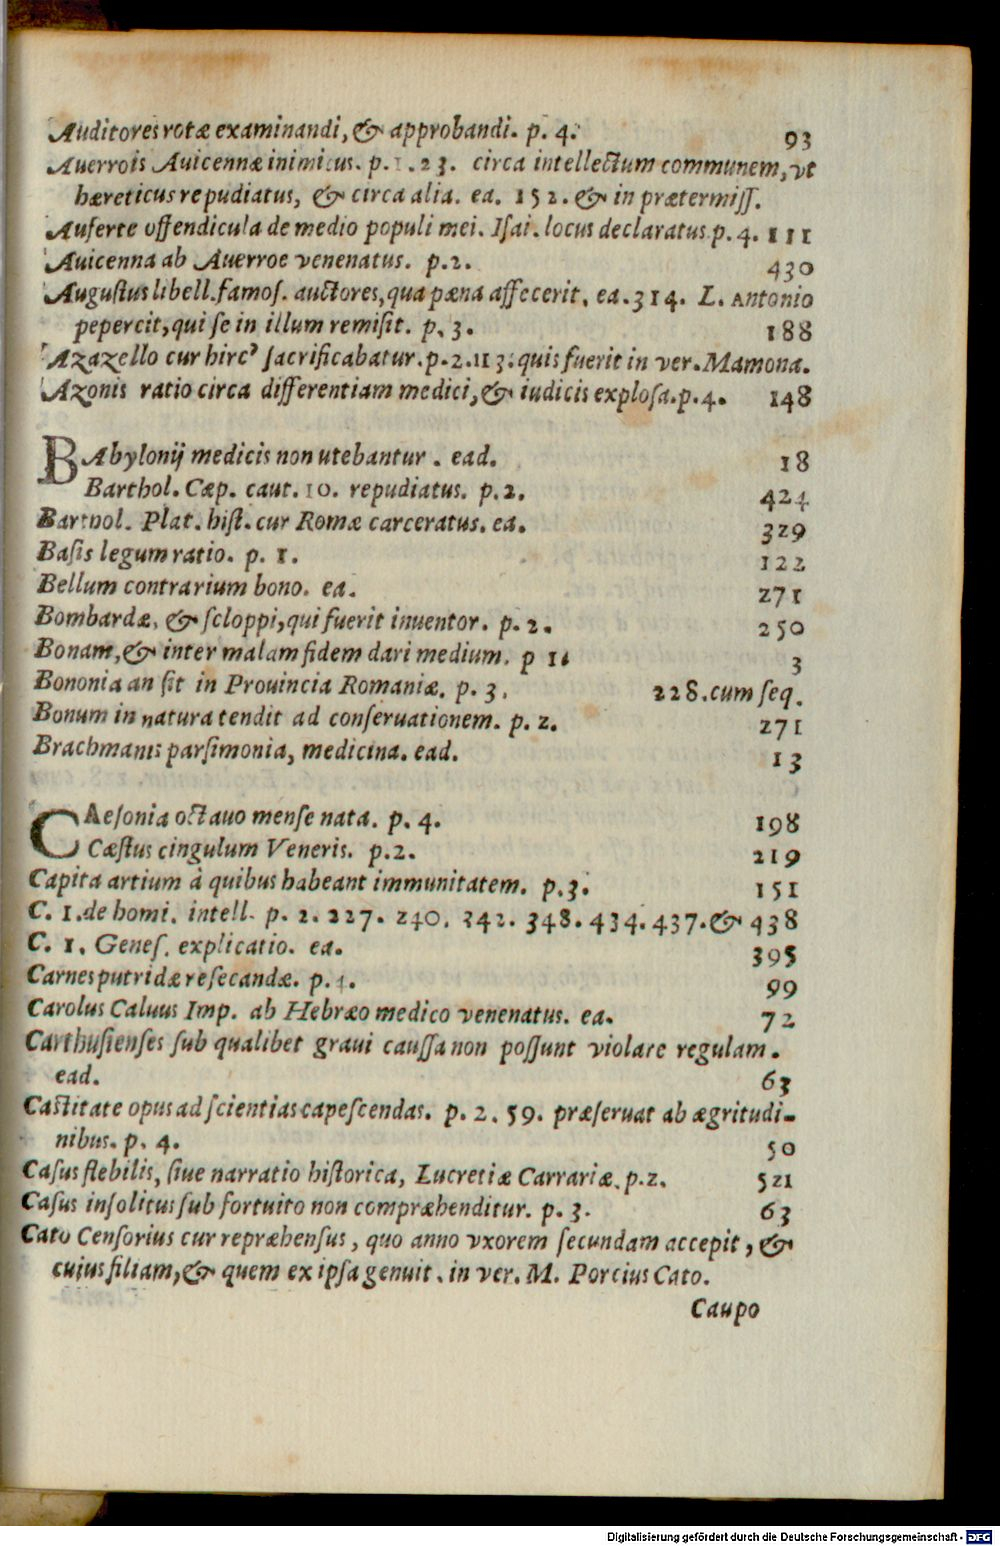 Auditores rotæ examinandi, & approbandi. p. 4. 93
Auerrois Auicennæ inimicus. p. 1. 23. circa intellectum communem, vt
hæreticus repudiatus, & circa alia. ea. 152. & in prætermiſſ.
Auferte offendicula de medio populi mei. Iſai. locus declaratus. p. 4. 111
Auicenna ab Auerroe venenatus. p. 2. 430
Auguſtus libell. famoſ. auctores, qua pæna affecerit, ea. 314. L. Antonio
pepercit, qui ſe in illum remiſit. p. 3. 188
Azazello cur hircꝰ ſacrificabatur. p. 2. 113. quis fuerit in ver. Mamona.
Azonis ratio circa differentiam medici, & iudicis exploſa. p. 4. 148
BAbylonij medicis non utebantur. ead. 18
Barthol. Cæp. caut. 10. repudiatus. p. 2. 424
Barthol. Plat. hiſt. cur Romæ carceratus. ea. 329
Baſis legum ratio. p. 1. 122
Bellum contrarium bono. ea. 271
Bombardæ, & ſcloppi, qui fuerit inuentor. p. 2. 250
Bonam, & inter malam fidem dari medium. p 1. 3
Bononia an ſit in Prouincia Romaniæ. p. 3. 228. cum ſeq.
Bonum in natura tendit ad conſeruationem. p. 2. 271
Brachmanis parſimonia, medicina. ead. 13
CAeſonia octauo menſe nata. p. 4. 198
Cæſtus cingulum Veneris. p. 2. 219
Capita artium à quibus habeant immunitatem. p. 3. 151
C. 1. de homi. intell. p. 2. 227. 240. 342. 348. 434. 437. & 438
C. 1. Geneſ. explicatio. ea. 395
Carnes putridæ reſecandæ. p. 4. 99
Carolus Caluus Imp. ab Hebræo medico venenatus. ea. 72
Carthuſienſes ſub qualibet graui cauſſa non poſſunt violare regulam.
ead. 63
Caſtitate opus ad ſcientias capeſcendas. p. 2. 59. præſeruat ab ægritudi-
nibus. p. 4. 50
Caſus flebilis, ſiue narratio hiſtorica, Lucretiæ Carrariæ. p. 2. 521
Caſus inſolitus ſub fortuito non compræhenditur. p. 3. 63
Cato Cenſorius cur repræhenſus, quo anno vxorem ſecundam accepit, &
cuius filiam, & quem ex ipſa genuit. in ver. M. Porcius Cato.
Caupo
Digitalisierung gefördert durch die Deutsche Forschungsgemeinschaft - DFG